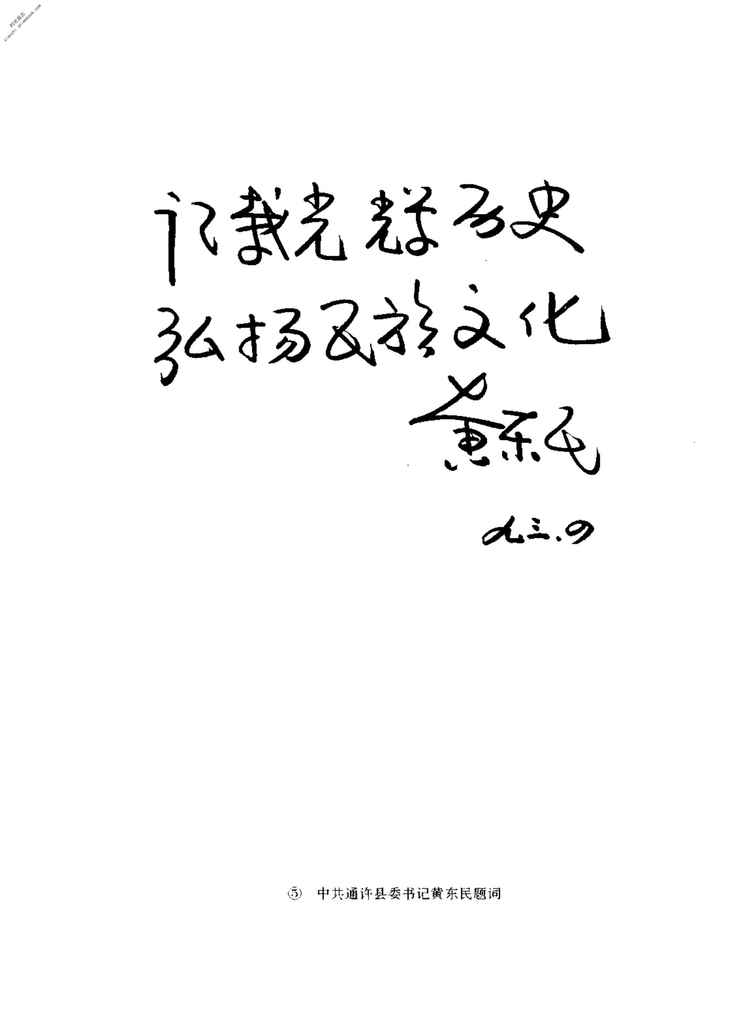 记载光辉历史
弘扬民族文化
黄东民
九三.四
⑤ 中共通许县委书记黄东民题词